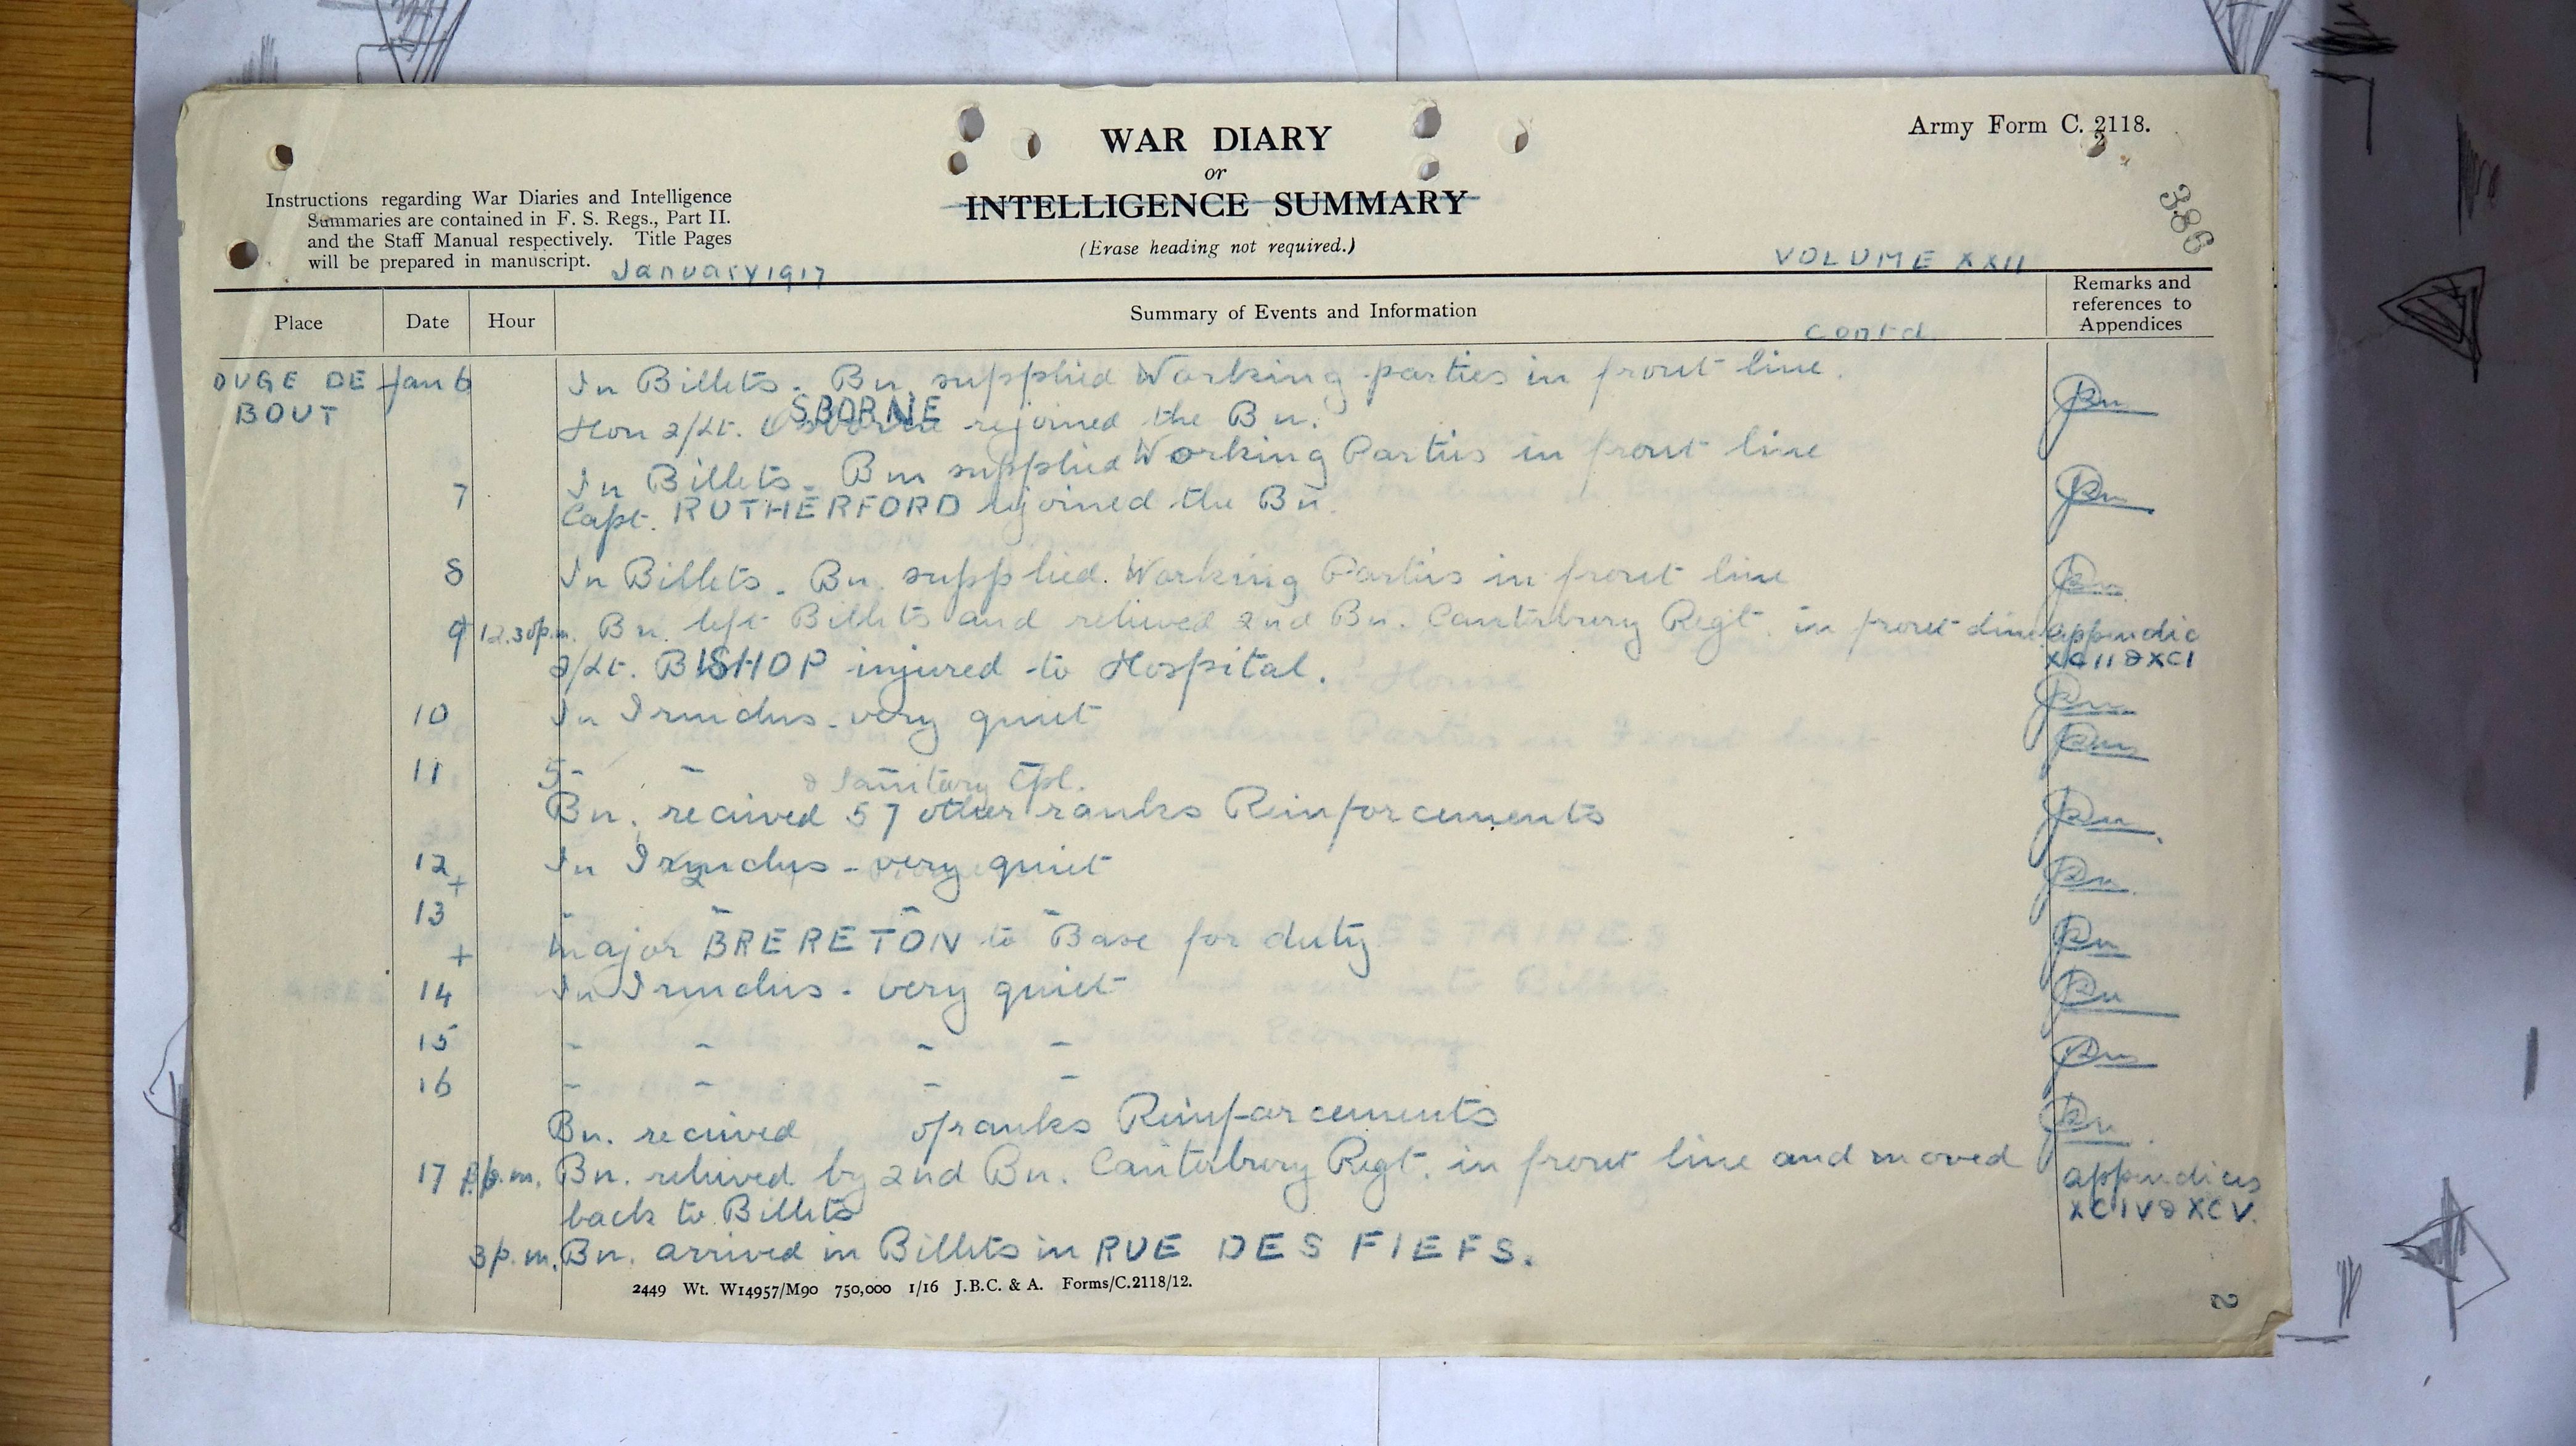 Army Form C. 2118.
WAR DIARY
or
INTELLIGENCE SUMMARY
(Erase heading not required.)
Instructions regarding War Diaries and Intelligence
Summaries are contained in F. S. Regs., Part II.
and the Staff Manual respectively. Title Pages
will be prepared in manuscript.
January 1917
VOLUME XXII
2
386
Place Date Hour Summary of Events and Information Remarks and references to Appendices
Contd
OUGE DE Jan 6 In Billets - Bn. supplied Working parties in front line.
BOUT
Hon 2/Lt. OSBORNE rejoined the Bn.
7 In Billets - Bn supplied Working Parties in front line
Capt. RUTHERFORD rejoined the Bn.
8 In Billets - Bn. supplied Working Parties in front line
9 12.30p.m. Bn. left Billets and relieved 2nd Bn. Canterbury Regt. in front line appendic
2/Lt. BISHOP injured to Hospital. XCII & XCI
10 In Trenches - very quiet
11 " "
& Sanitary Cpl.
Bn. received 57 other ranks Reinforcements
12 In Trenches - very quiet
13 " " " "
Major BRERETON to Base for duty
14 In Trenches - very quiet
15 " " " "
16 " " " "
Bn. received o/ranks Reinforcements
17 p.m. Bn. relieved by 2nd Bn. Canterbury Regt. in front line and moved appendices
back to Billets XCIV & XCV.
3 p.m. Bn. arrived in Billets in RUE DES FIEFS.
2449 Wt. W14957/M90 750,000 1/16 J.B.C. & A. Forms/C.2118/12.
2